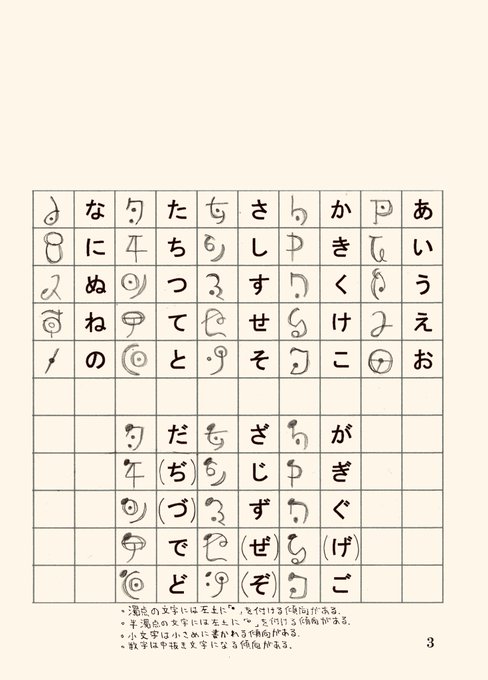 あいうえお
かきくけこ
さしすせそ
たちつてと
なにぬねの
がぎぐ(げ)ご
ざじず(ぜ)(ぞ)
だ(ぢ)(づ)でど
・濁点の文字には左上に「●」を付ける傾向がある.
・半濁点の文字には左上に「○」を付ける傾向がある.
・小文字は小さめに書かれる傾向がある.
・数字は中抜き文字になる傾向がある.
3